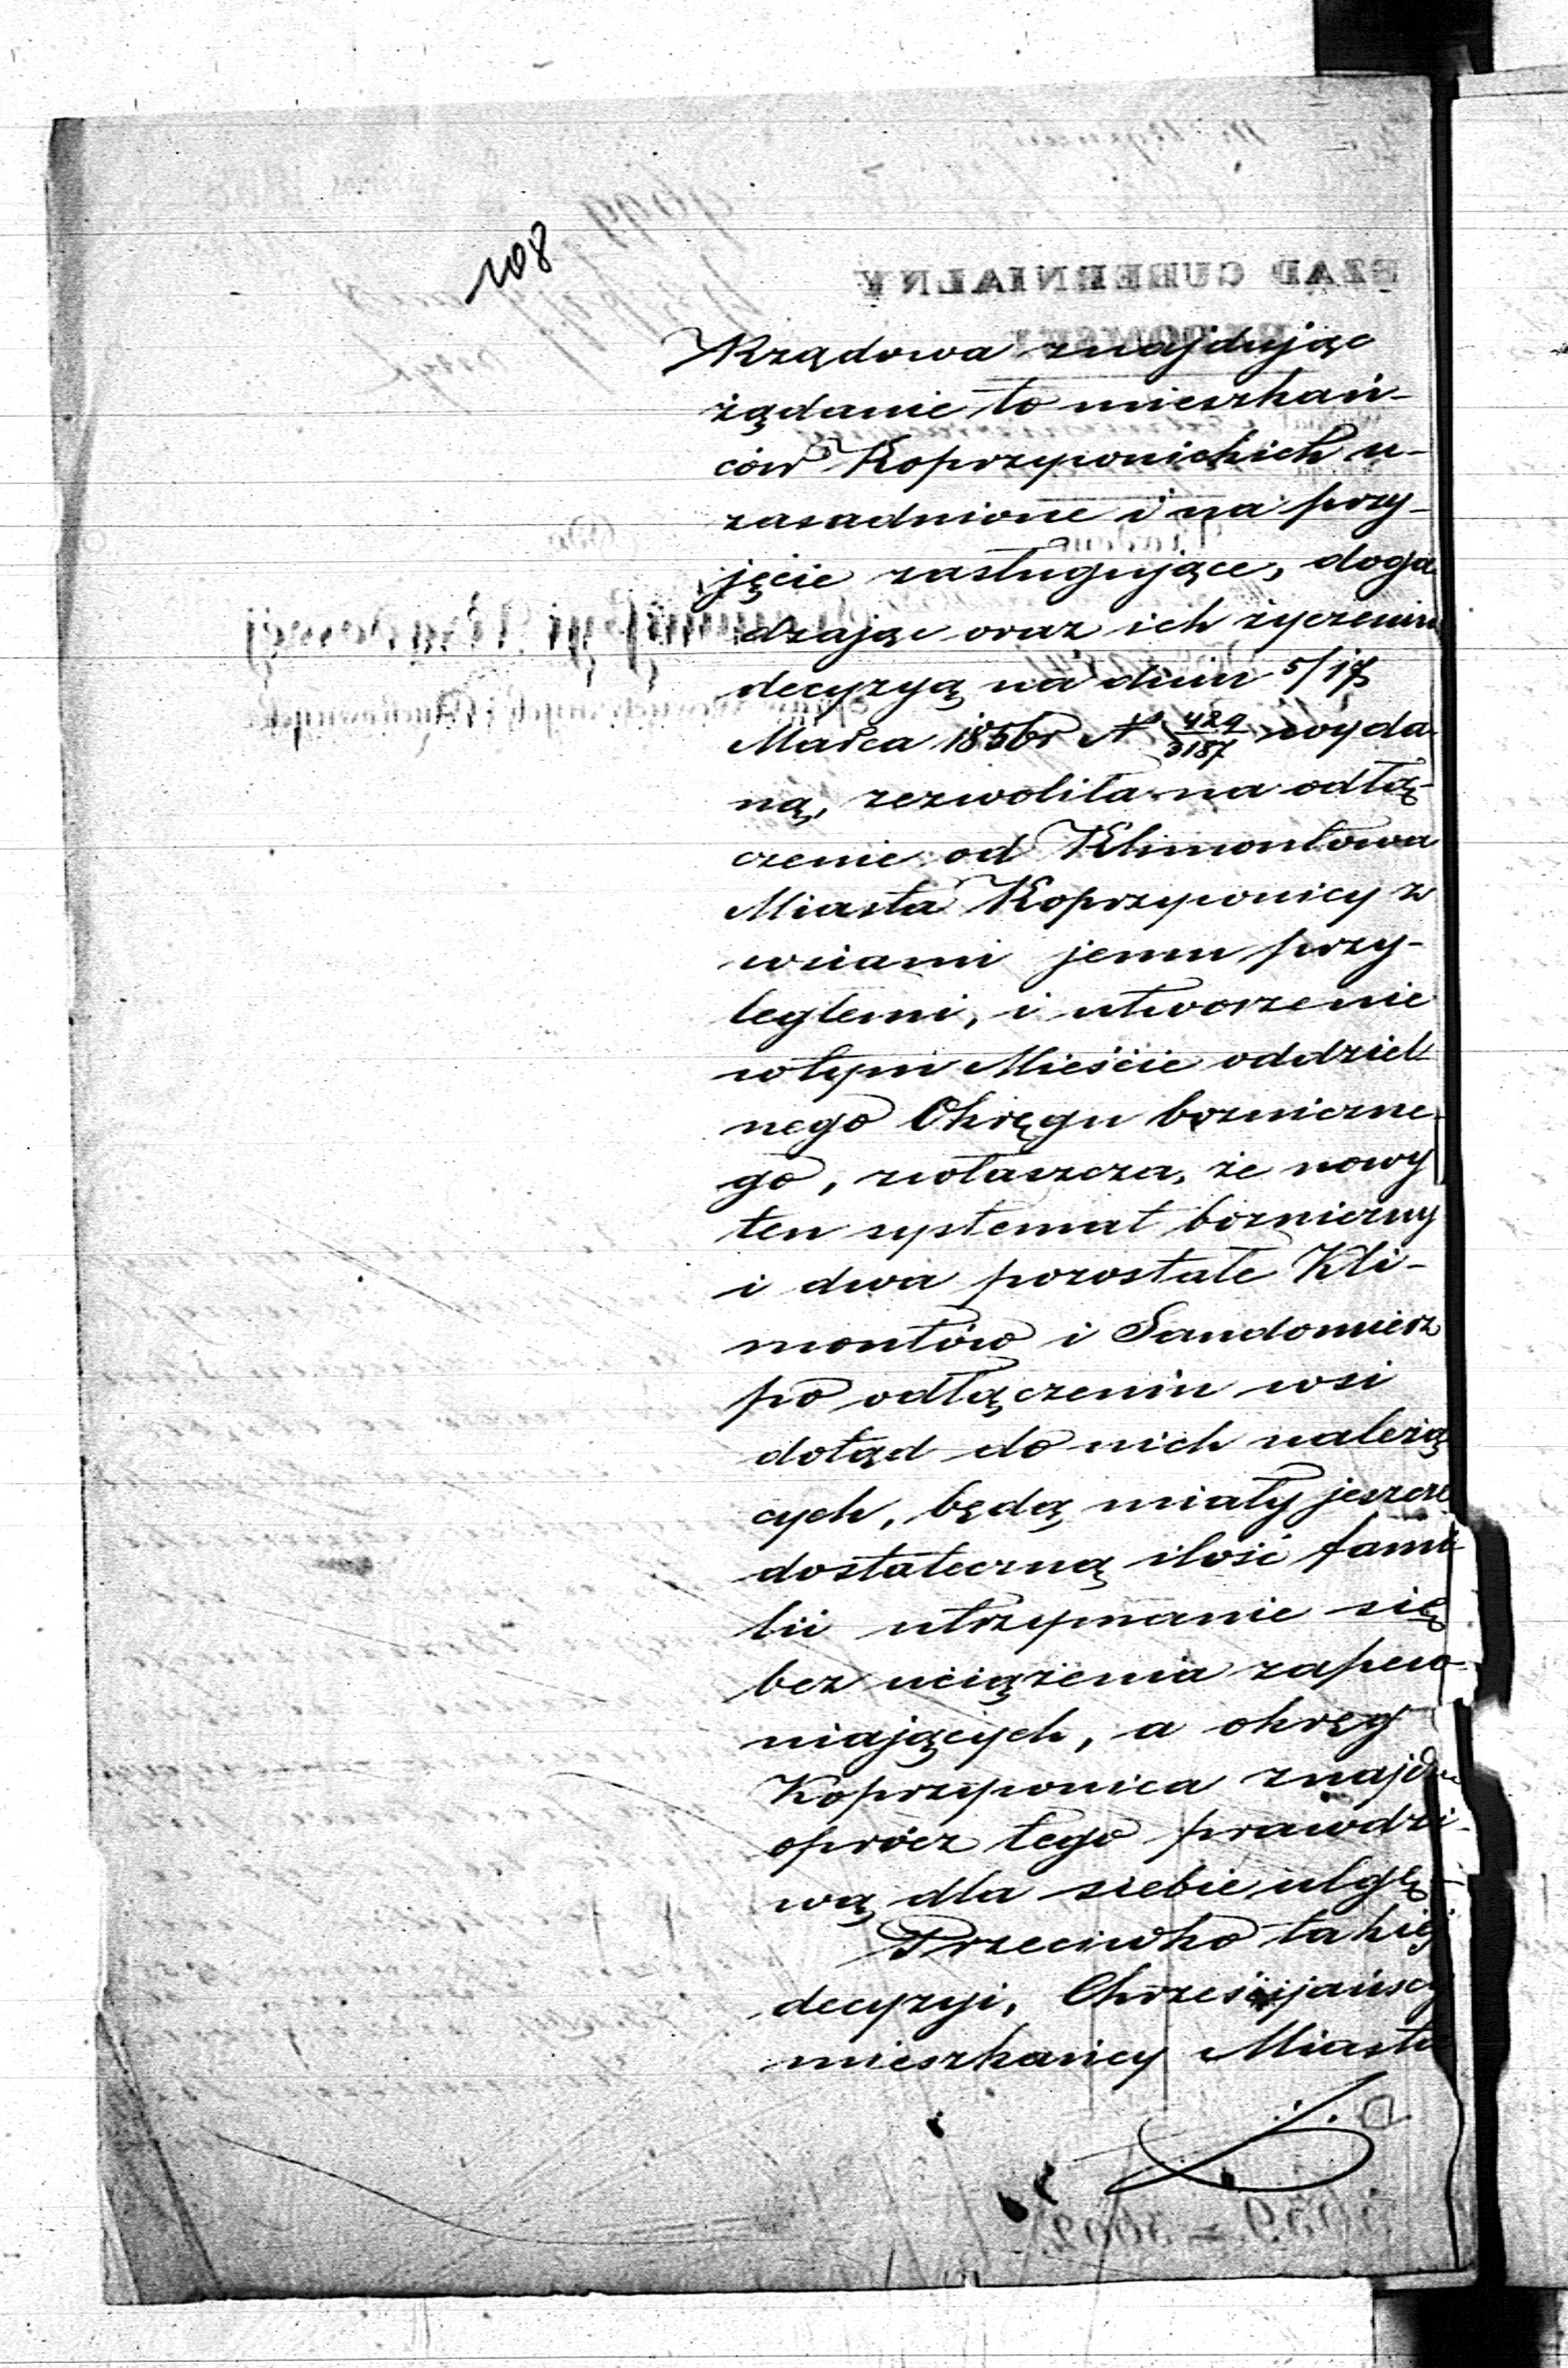 108
Rządowa znajdując
żądanie to mieszkań-
ców Koprzywnickich u-
zasadnione i na przy-
jęcie zasługujące, doga
dzając oraz ich życzeniu
decyzyą na dniu 5/17
Marca 1856r N 429/3187 wyda
ną, zezwoliła na odłą-
czenie od Klimontowa
Miasta Koprzywnicy z
wsiami jemu przy-
ległemi, i utworzenie
w tym Mieście oddziel
nego Okręgu bożniczne-
go, zwłaszcza, że nowy
ten systemat bożniczny
i dwa pozostałe Kli-
montów i Sandomierz
po odłączeniu wsi
dotąd do nich należą
cych, będą miały jeszcze
dostateczną ilość fami
lii utrzymanie się
bez uciążenia zapew-
niających, a okręg
Koprzywnica znajdu
oprócz tego prawdzi-
wą dla siebie ulgę -
Przeciwko takiej
decyzyi, Chrześcijańscy
mieszkańcy Miasta